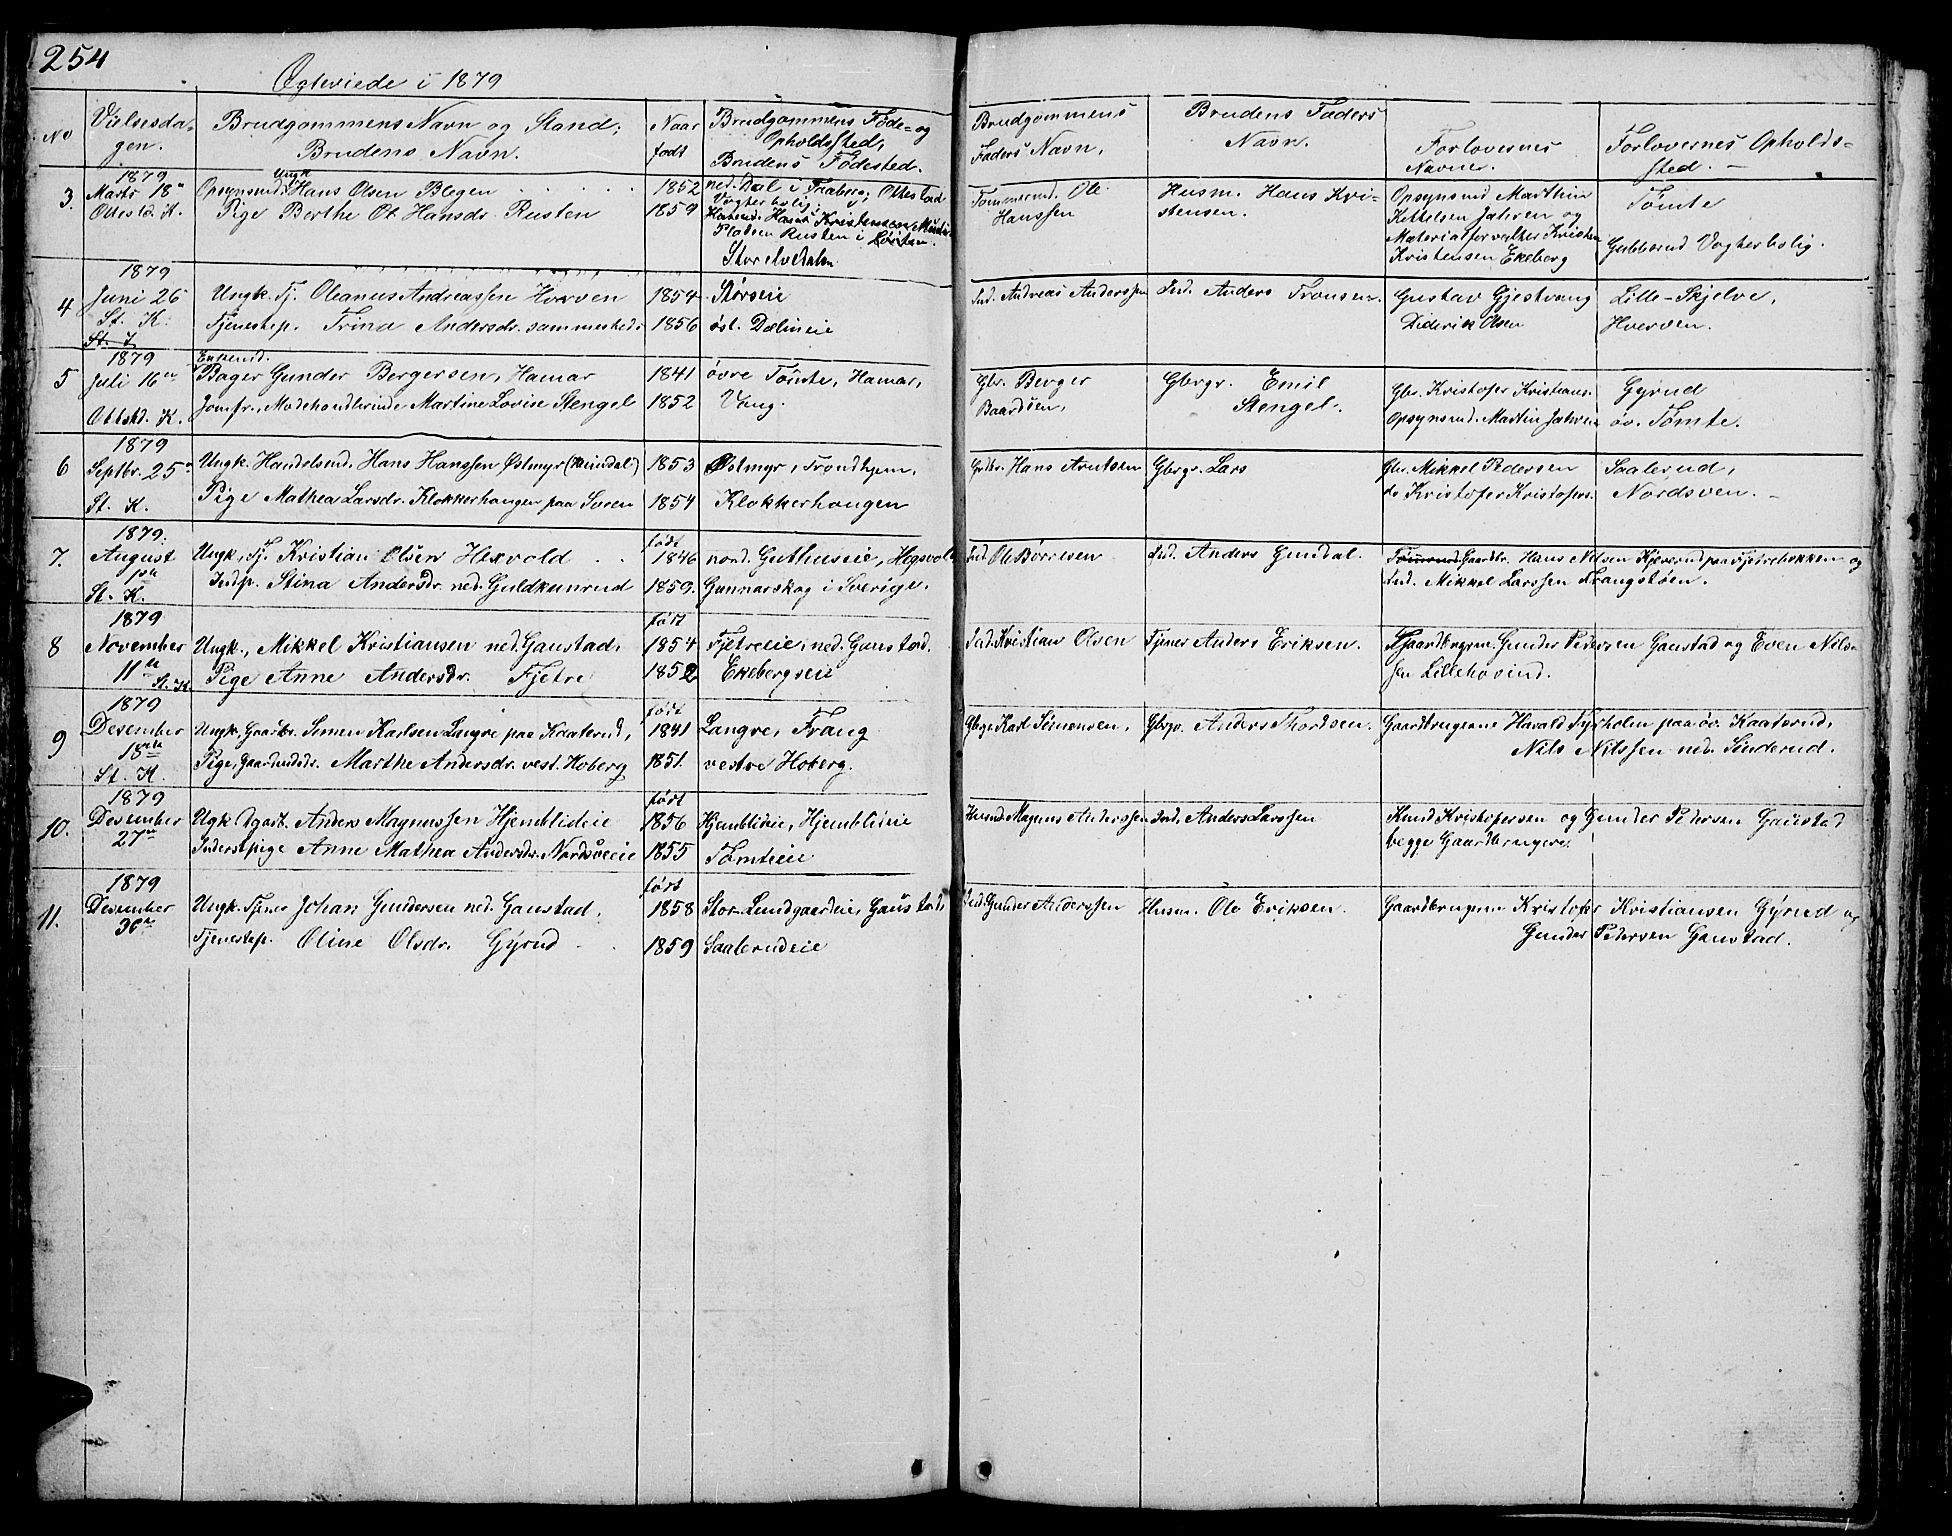 254
Ægteviede i 1879
No
Vielsesdagen.
Brudgommens Navn og Stand;
Brudens Navn.
Naar født
Brudgommens Føde- og
Opholdssted;
Brudens Fødested.
Brudgommens
Faders Navn.
Brudens Faders
Navn.
Forlovernes
Navne.
Forlovernes Opholds-
sted. —
3.
1879
Marts 18de
Ottestd. K.
Ungk
Opsynsmd. Hans Olsen Bagen
Pige Berthe Ol. Hansdr. Rusten
1852
1859
ned. Dal i Faaberg, Ottestad
Vogterbolig;
Husmd. Hans Kristensen
Pladsen Rusten i Løiten.
Storelvedalen
Tømmermd. Ole
Hanssen
Husm. Hans Kri-
stensen.
Opsynsmd Marthin
Kettelsen Jahren og
Materialforvalter Kristen
Kristensen Ekeberg
Tømte
Gubberud Vogterbolig.
4
1879
Juni 26
St. K.
St. J.
Ungk. Tj. Oleanus Andreassen Horven
Tjenestep. Trina Andersdr. sammesteds
1854
1856
Størseie
øst. Dælineie
Ind. Andreas Anderssen
Ind. Anders Tronsen.
Gustav Gjestvang
Diderik Olsen
Lille-Skjelve,
Hverven.
5
1879
Juli 16en
Ottestd. K.
Enkemd.
Bager Gunder Bergersen, Hamar
Jomfr., Modehandlerinde Martine Lovise Stengel
1841
1852
øvre Tømte, Hamar,
Vang.
Gbr. Berger
Baardsen,
Gbrgr. Emil
Stengel.
Gbr. Kristofer Kristians.
Opsynsmd. Martin Jahren
Gyrud
øv. Tømte.
6
1879
Septbr. 25de
St. K.
Ungk. Handelsmd. Hans Hanssen Østmyr (Heimdal)
Pige Mathea Larsdr. Klokkerhaugen paa Sveen
1853
1854
Østmyr, Trondhjem,
Klokkerhaugen
Gbr. Hans Arntsen
Gbrgr. Lars
Gbr. Mikkel Pedersen
do Kristofer Kristofers.
Saalerud,
Nordsven. —
7.
1879.
August
1ste
St. K.
Ungk. Tj. Kristian Olsen Hexvold
Indp. Stina Andersdr. ned. Guldkunrud
født
1846
1859.
nord. Guthuseie, Hegsvold
Gunnarskog i Sverige.
Ind. Ole Børresen
Ind. Anders Gundal.
Gaardbr. Hans Nilsen Kjeverud paa Fjetrebakken og
Ind. Mikkel Larssen Frangstøen.
8
1879
November
11te St. K.
Ungk., Mikkel Kristiansen ned. Gaustad,
Pige Anne Andersdr. Fjetre
født
1854
1852
Fjetreeie, ned. Gaustad.
Ekebergseie
Ind. Kristian Olsen
Tjener Anders Eriksen.
Gaardbrugerne Gunder Pedersen Gaustad og Even Nils-
sen Lillehovind.
9
1879
Desember
18de
St. K.
Ungk. Gaardbr. Simen Karlsen Langre paa Kaaterud,
Pige, Gaardmdsdr. Marthe Andersdr. vest. Hoberg
født
1841
1851.
Langre, Frang
vestre Hoberg.
Gbrgr. Karl Simensen,
Gbrgr. Anders Thordsen.
Gaardbrugerne Harald Tyrholm paa øv. Kaaterud,
Nils Nilssen ned. Sønderud.
10.
1879
Desember
27de
Ugk Dgarb. Anders Magnussen Hjemblideie
Inderstpige Anne Mathea Andersdr. Nordsveeie
født
1856
1855
Hjemblieie, Hjemblieie
Tomteeie
Husmd Magnus Anderssen
Ind. Anders Larssen
Knud Kristofersen og Gunder Pedersen Gaustad
begge Gaardbrugere.
11.
1879
Desember
30te
Ungk. Tjener Johan Gundersen ned. Gaustad,
Tjenestep. Oline Olsdr. Gyrud
født
1858
1859
Stor-Lundgaardeie, Gaustad,
Saalerudeie
Ind. Gunder Anderssen
Husm. Ole Eriksen.
Gaardbrugerne Kristofer Kristiansen Gyrud og
Gunder Pedersen Gaustad.